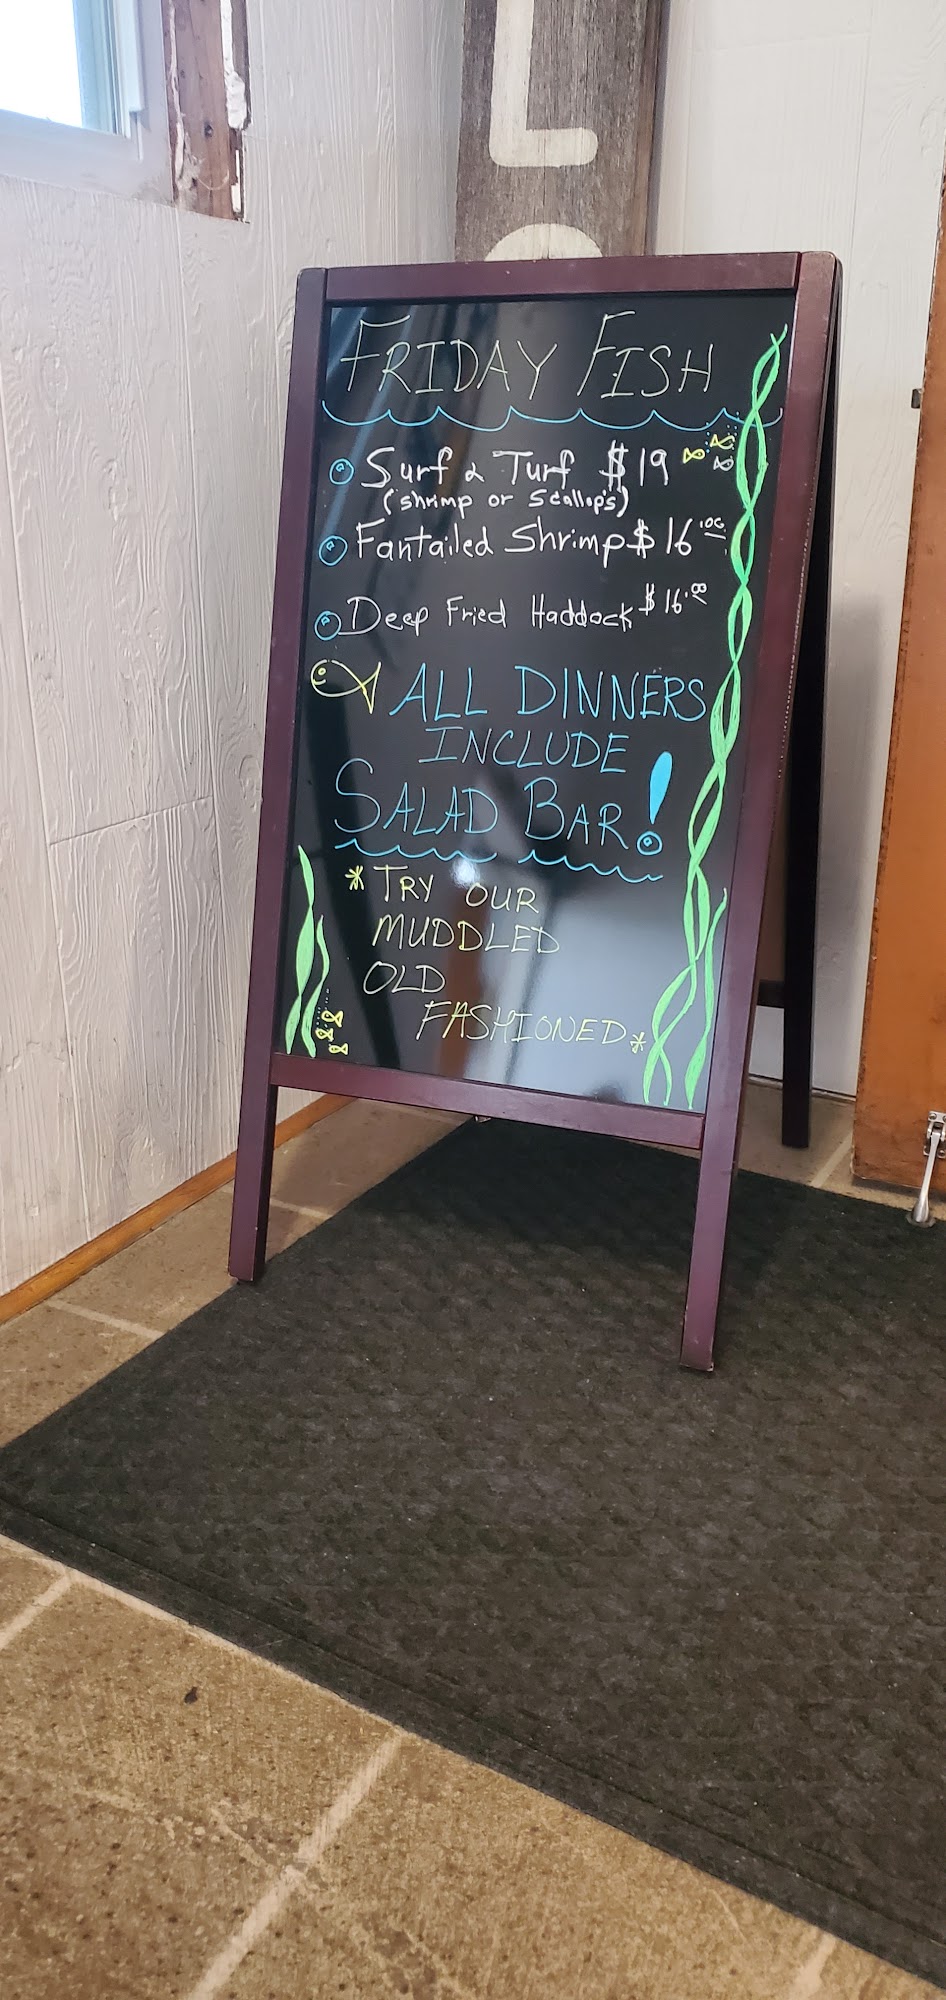 L
FRIDAY FISH
Surf & Turf $19
(shrimp or Scallops)
Fantailed Shrimp $16.00
Deep Fried Haddock $16.00
ALL DINNERS
INCLUDE
SALAD BAR!
*TRY OUR
MUDDLED
OLD
FASHIONED*